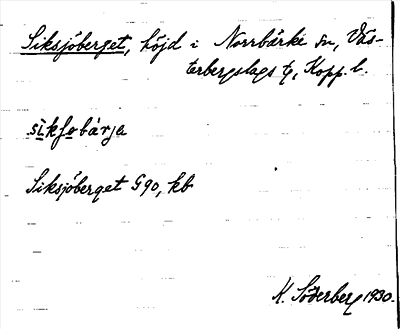 Siksjöberget, höjd i Norrbärke sn, Väs-
terbergslags tg, Kopp. l.
sìkʃobàrjə
Siksjöberget G 90, kb
K. Söderberg 1930.